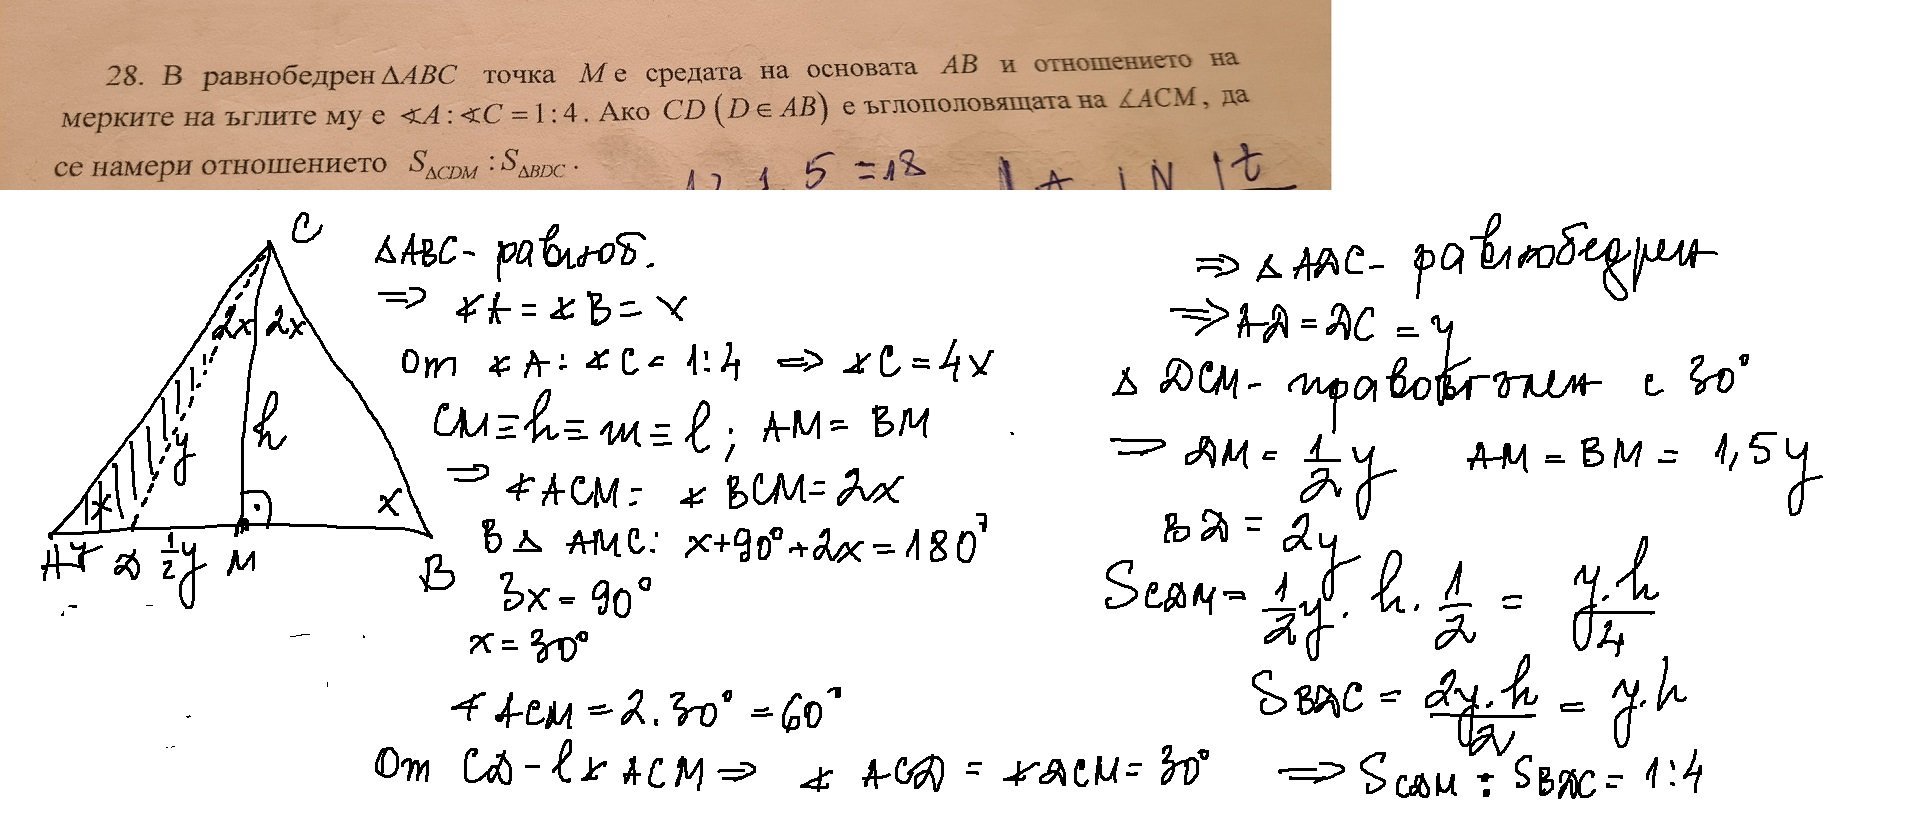 28. В равнобедрен ΔABC точка M е средата на основата AB и отношението на
мерките на ъглите му е ∢A : ∢C = 1 : 4. Ако CD (D ∈ AB) е ъглополовящата на ∠ACM, да
се намери отношението S△CDM : S△BDC.
5 = 18
t
C
2x 2x
h
y
x
x
A y D ½y M B
ΔABC - равноб.
⇒ ∢A = ∢B = x
От ∢A : ∢C = 1:4 ⇒ ∢C = 4x
CM ≡ h ≡ m ≡ l ; AM = BM
⇒ ∢ACM = ∢BCM = 2x
В Δ AMC: x+90°+2x = 180°
3x = 90°
x = 30°
∢ACM = 2.30° = 60°
От CD - l ∢ ACM ⇒ ∢ ACD = ∢DCM = 30°
⇒ Δ ADC - равнобедрен
⇒ AD = DC = y
Δ DCM - правоъгълен с 30°
⇒ DM = 1/2 y AM = BM = 1,5y
BD = 2y
SCDM = 1/2 y . h . 1/2 = y.h/4
SBDC = 2y.h/2 = y.h
⇒ SCDM : SBDC = 1:4